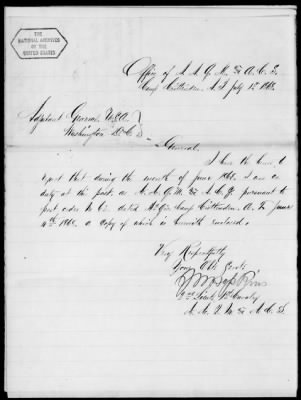 THE
NATIONAL ARCHIVES
OF THE
UNITED STATES
Office of A. A. Q. M. & A. C. S.
Camp Crittenden, A. T. July 1st 1868.
Adjutant General, U.S.A.
Washington D.C.
General,
I have the honor to
report that during the month of June 1868, I was on
duty at this post as A. A. Q. M. & A. C. S. pursuant to
post order No. dated Hd. Qrs. Camp Crittenden A. T. June
4th 1868, a copy of which is herewith enclosed.
Very Respectfully
Your Obt. Servt.
Lieut. 1st Cavalry
A. A. Q. M. & A. C. S.